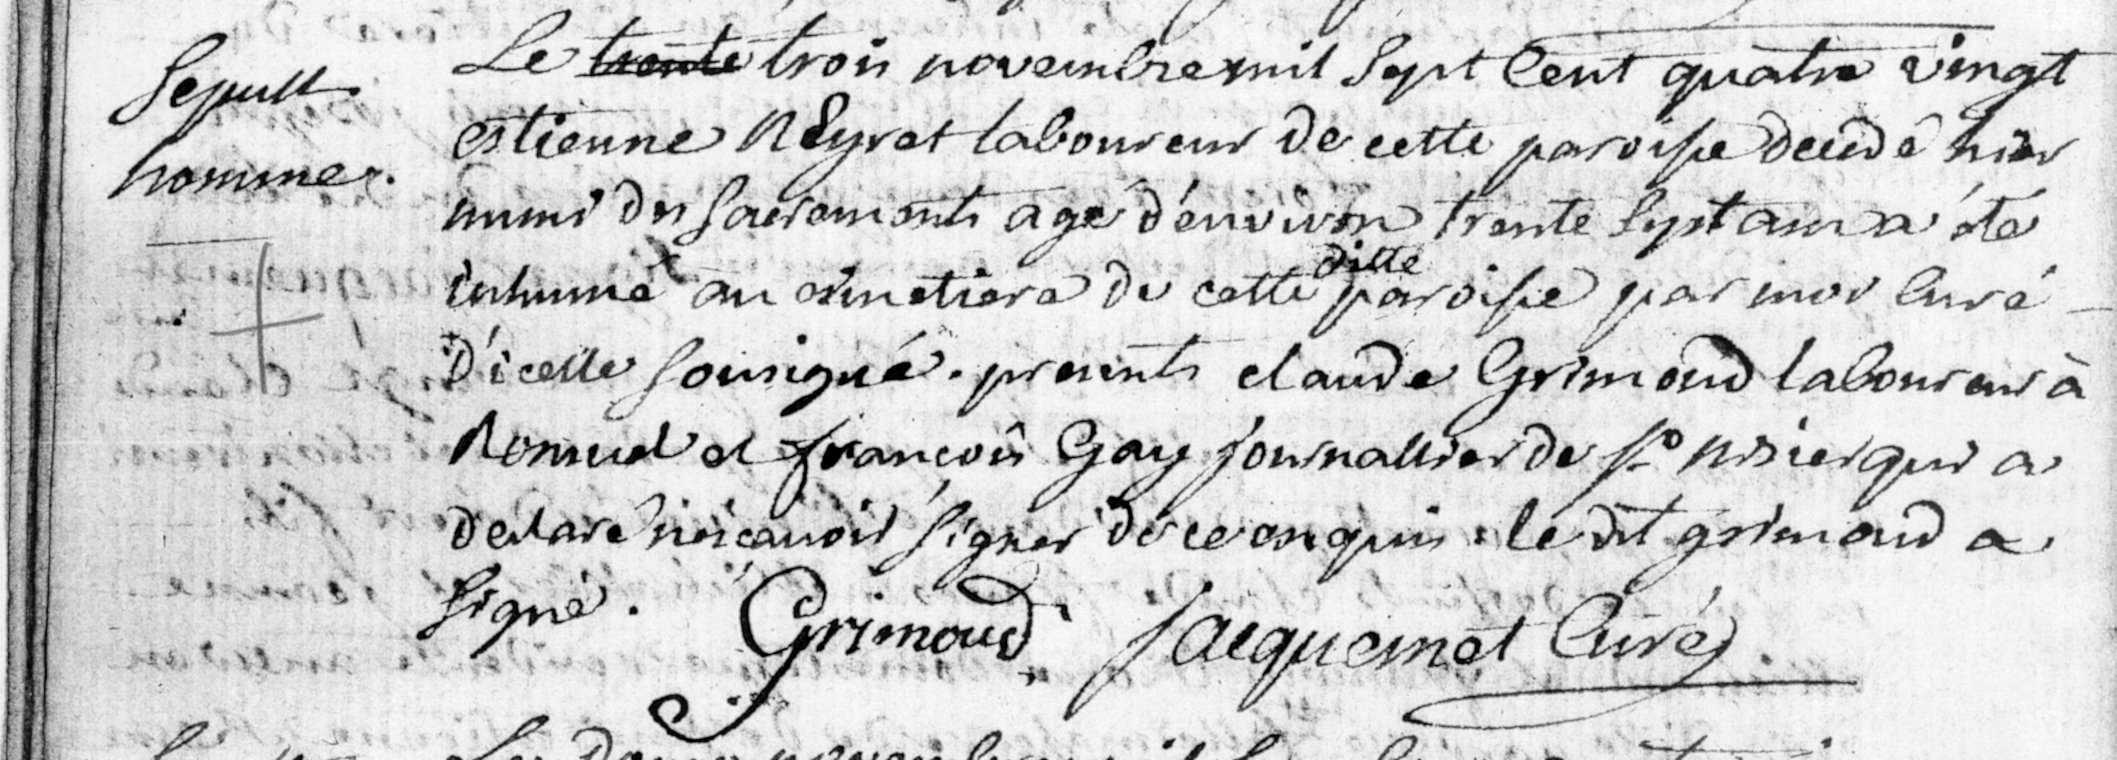 Sepult
homme.
Le trente trois novembre mil sept cent quatre vingt
estienne Neyret laboureur de cette paroisse decedé hier
muni des sacrements agé d'environ trente sept ans a été
inhumé au cimetiere de cette ditte paroisse par moi curé
d'icelle sousigné. presents claude Grimoud laboureur à
et françois Gay journallier de st nisier qui a
declaré ne scavoir signer de ce enquis. le dit grimoud a
signé. Grimoud Jacquemet Curé